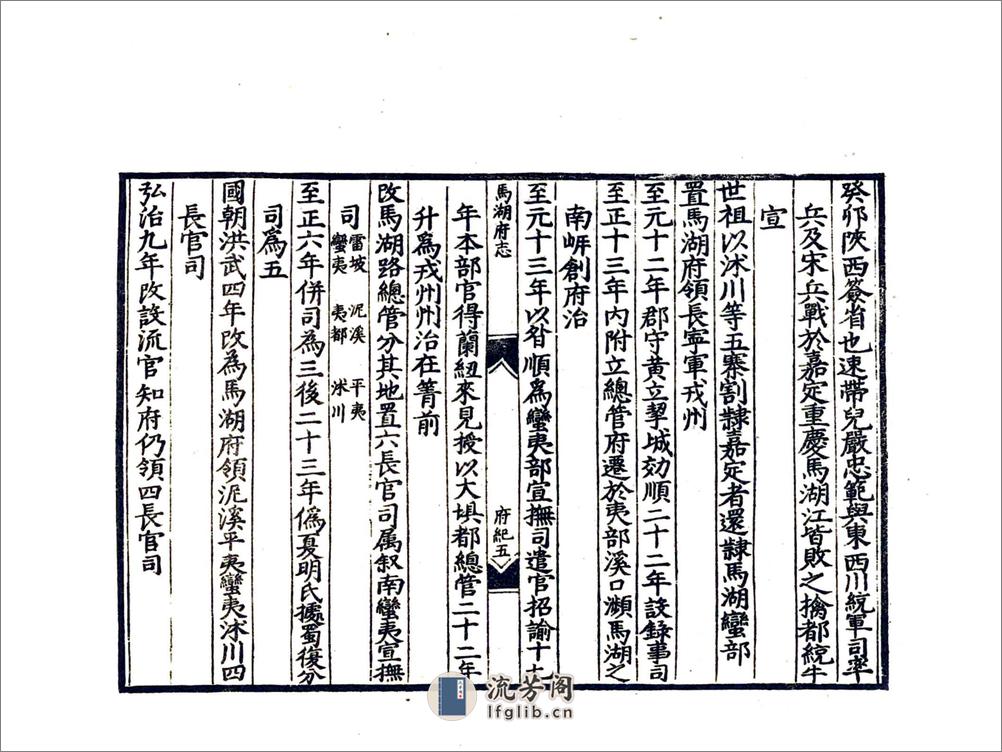 癸夘陝西簽省也速帶兒嚴忠範與東西川統軍司率
兵及宋兵戰於嘉定重慶馬湖江皆敗之擒都統牛
宣
世祖以沭川等五寨割隸嘉定者還隸馬湖蠻部
置馬湖府領長寧軍戎州
至元十二年郡守黃立挈城効順二十二年設錄事司
至正十三年內附立總管府遷於夷部溪口瀕馬湖之
南岍創府治
至元十三年以咎順爲蠻夷部宣撫司遣官招諭十七
馬湖府志
府紀五
年本部官得蘭紐來見授以大埧都總管二十二年
升爲戎州州治在箐前
改馬湖路總管分其地置六長官司属叙南蠻夷宣撫
司 雷坡 泥溪 平夷
蠻夷 夷都 沭川
至正六年併司為三後二十三年僞夏明氏據蜀復分
司爲五
國朝洪武四年改為馬湖府領泥溪平夷蠻夷沭川四
長官司
弘治九年改設流官知府仍領四長官司
流芳阁
lfglib.cn